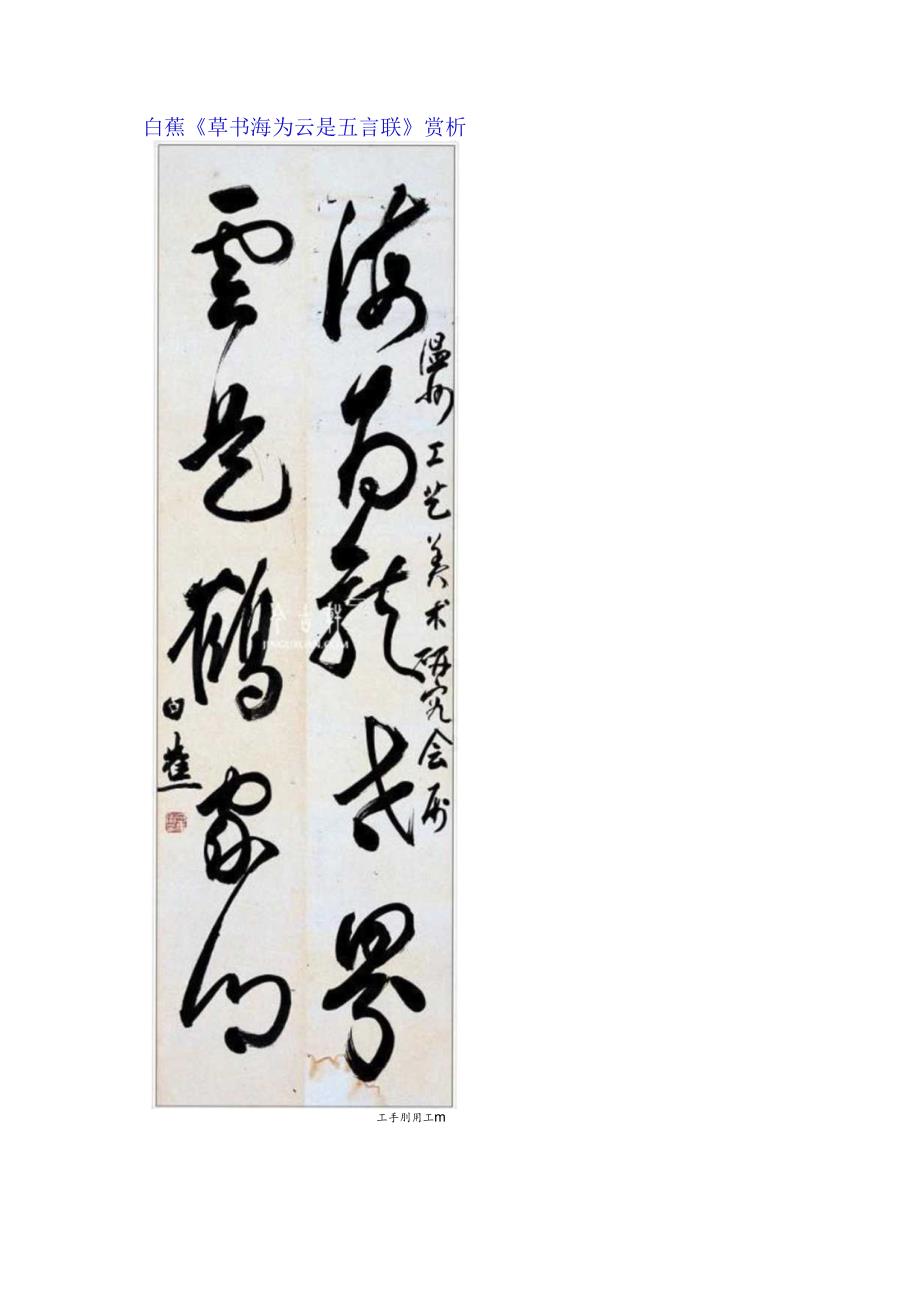 白蕉《草书海为云是五言联》赏析
海为龙世界
溫州工艺美术研究会属
雲是鶴家鄉
白蕉
今古軒
JINGUXUAN.COM
工手刖用工m